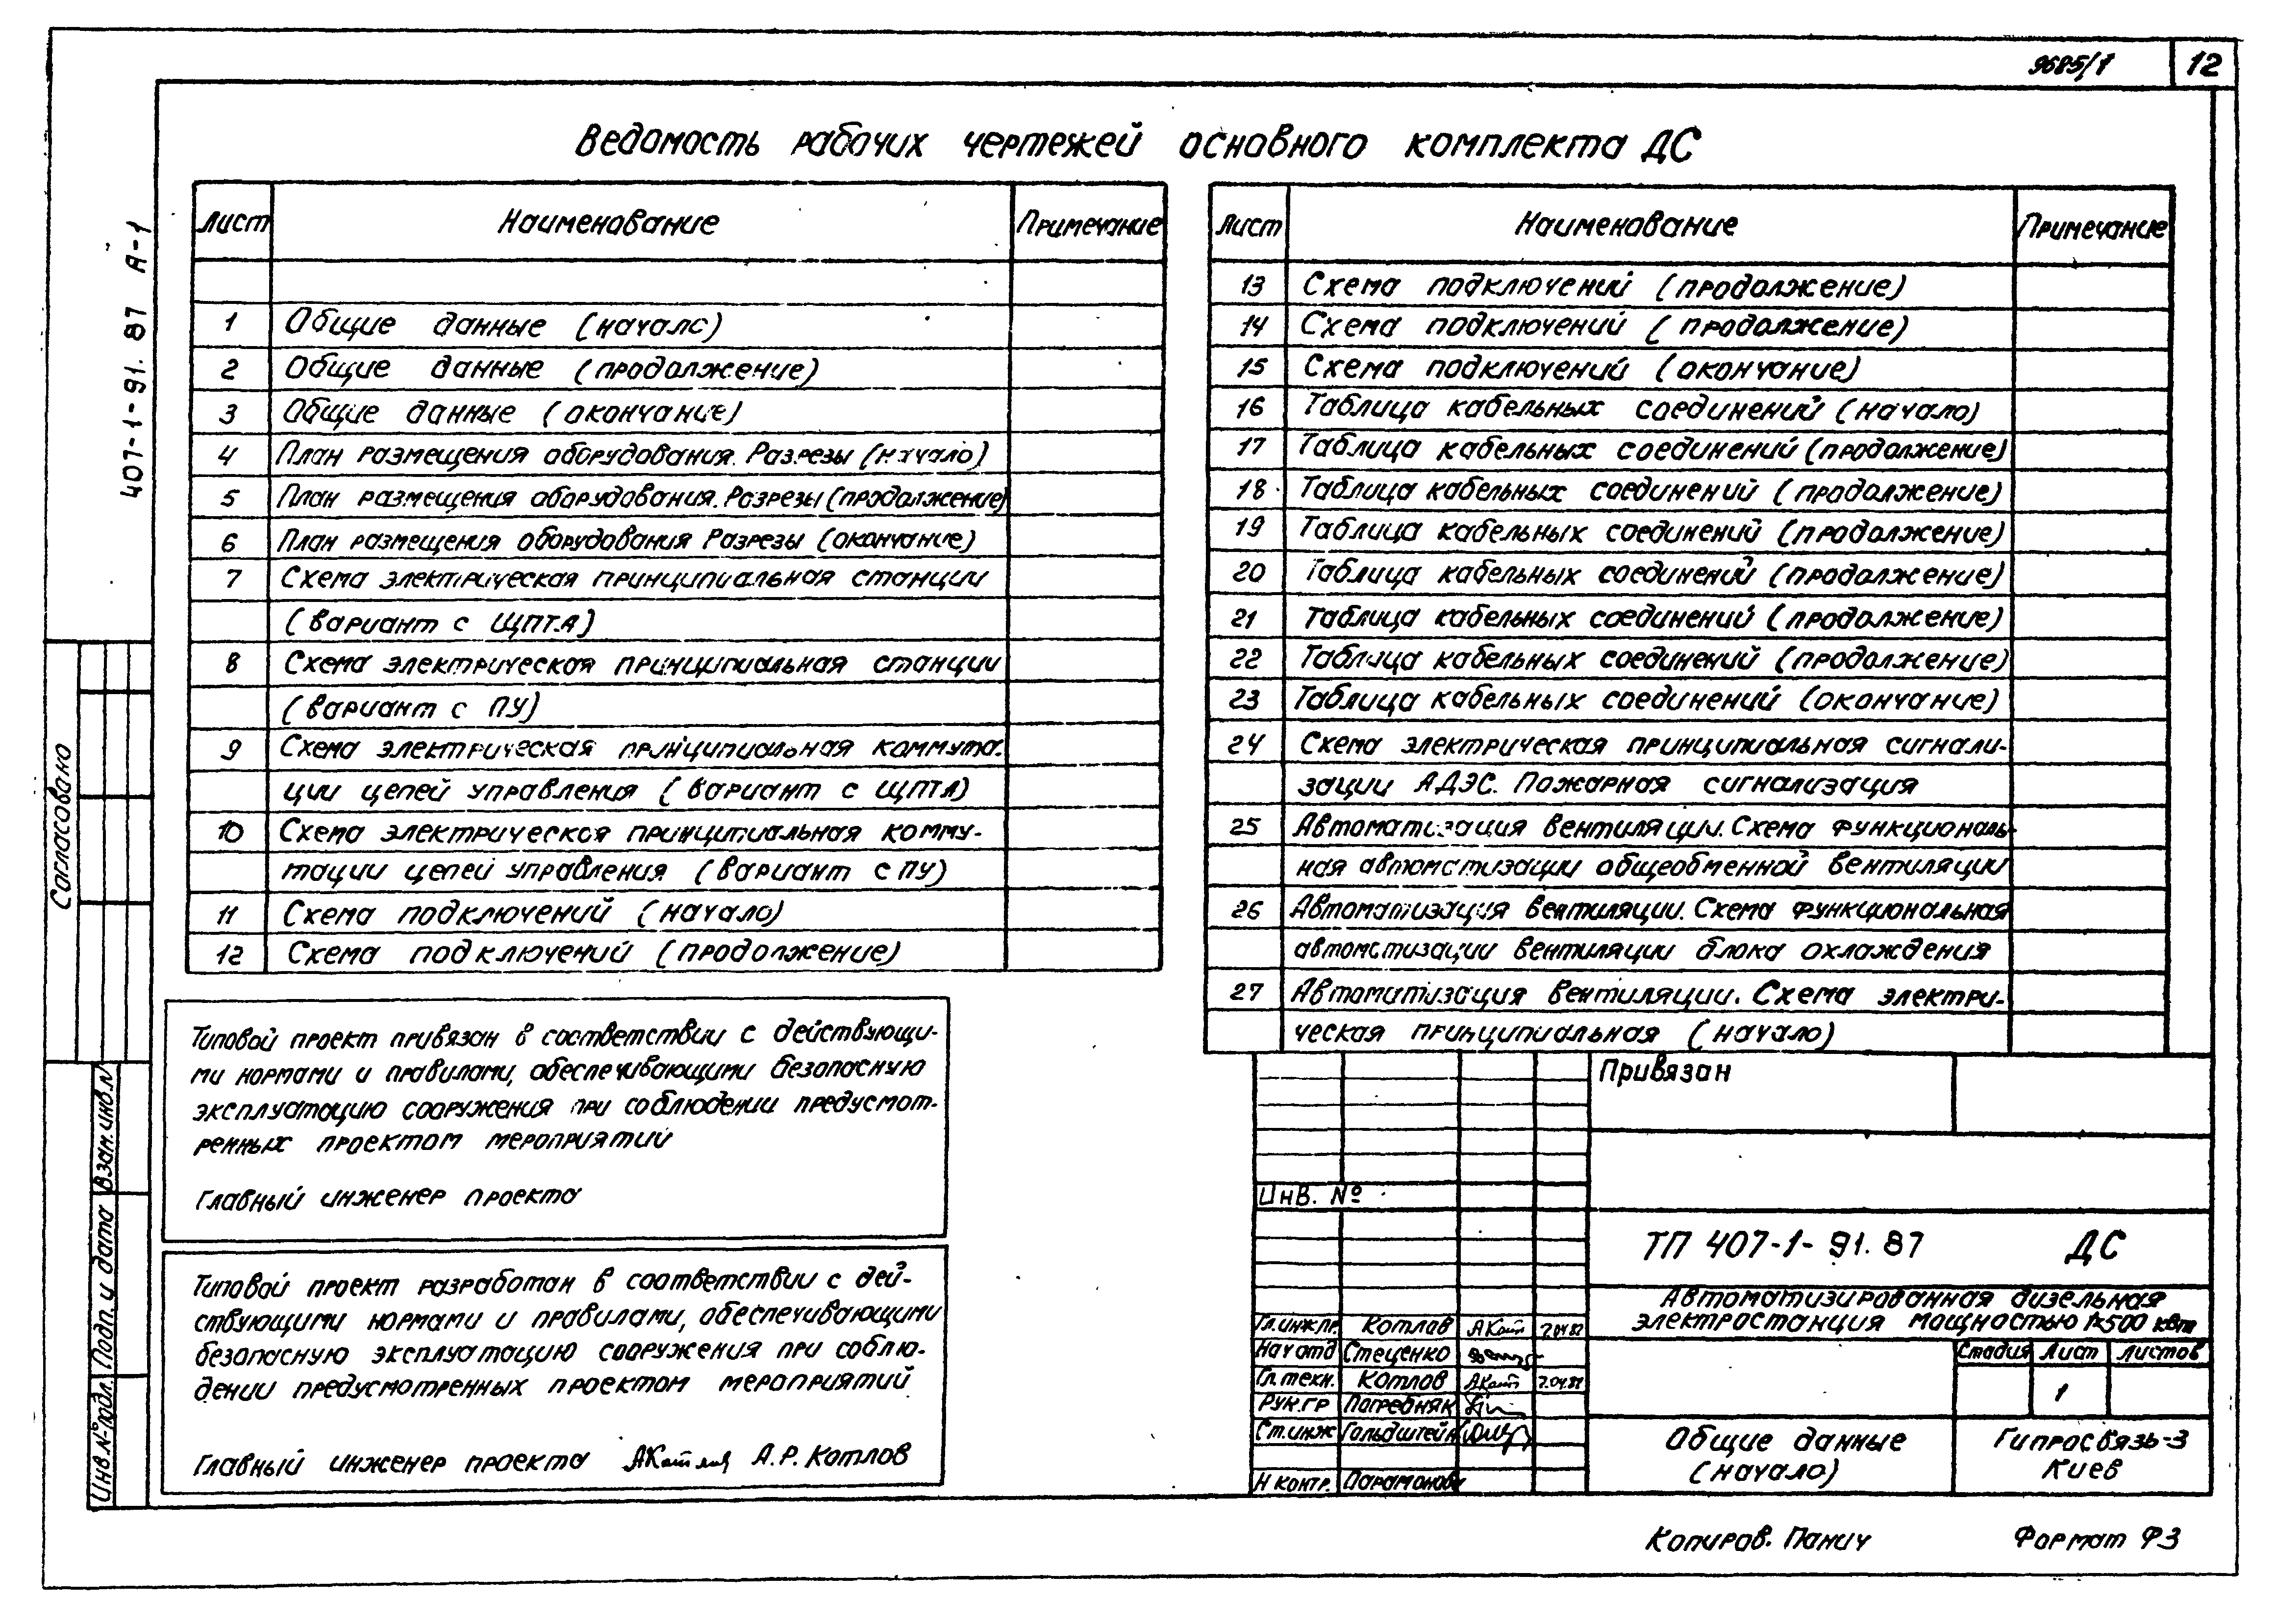 9685/1
12
407-1-91.87 А-1
Ведомость рабочих чертежей основного комплекта ДС
Лист Наименование Примечание
1 Общие данные (начало)
2 Общие данные (продолжение)
3 Общие данные (окончание)
4 План размещения оборудования. Разрезы (начало)
5 План размещения оборудования. Разрезы (продолжение)
6 План размещения оборудования Разрезы (окончание)
7 Схема электрическая принципиальная станции
(вариант с ЩПТА)
8 Схема электрическая принципиальная станции
(вариант с ПУ)
9 Схема электрическая принципиальная коммута-
ции цепей управления (вариант с ЩПТА)
10 Схема электрическая принципиальная комму-
тации цепей управления (вариант с ПУ)
11 Схема подключений (начало)
12 Схема подключений (продолжение)
Лист Наименование Примечание
13 Схема подключений (продолжение)
14 Схема подключений (продолжение)
15 Схема подключений (окончание)
16 Таблица кабельных соединений (начало)
17 Таблица кабельных соединений (продолжение)
18 Таблица кабельных соединений (продолжение)
19 Таблица кабельных соединений (продолжение)
20 Таблица кабельных соединений (продолжение)
21 Таблица кабельных соединений (продолжение)
22 Таблица кабельных соединений (продолжение)
23 Таблица кабельных соединений (окончание)
24 Схема электрическая принципиальная сигнали-
зации АДЭС. Пожарная сигнализация
25 Автоматизация вентиляции. Схема функциональ-
ная автоматизации общеобменной вентиляции
26 Автоматизация вентиляции. Схема функциональная
автоматизации вентиляции блока охлаждения
27 Автоматизация вентиляции. Схема электри-
ческая принципиальная (начало)
Типовой проект привязан в соответствии с действующи-
ми нормами и правилами, обеспечивающими безопасную
эксплуатацию сооружения при соблюдении предусмот-
ренных проектом мероприятий
Главный инженер проекта
Типовой проект разработан в соответствии с дей-
ствующими нормами и правилами, обеспечивающими
безопасную эксплуатацию сооружения при соблю-
дении предусмотренных проектом мероприятий
Главный инженер проекта А.Р. Котлов
Согласовано
Взам. инв. N
Подп. и дата
Инв. N° подл.
Привязан
Инв. №
ТП 407-1-91.87 ДС
Автоматизированная дизельная
электростанция мощностью 1×500 квт
Гл. инж. пр Котлов 7.04.87
Нач отд Стеценко
Гл. техн. Котлов 7.04.87
Рук. гр Погребняк
Ст. инж Гольдштейн
Н контр. Парамонова
Стадия Лист Листов
1
Общие данные
(начало)
Гипросвязь-3
Киев
Копиров. Панич
Формат Ф3